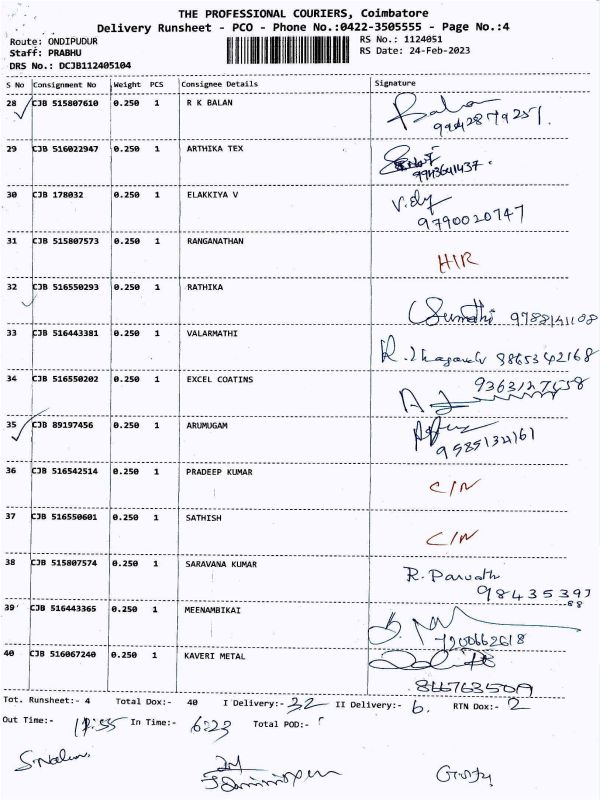 THE PROFESSIONAL COURIERS, Coimbatore
Delivery Runsheet - PCO - Phone No.:0422-3505555 - Page No.:4
Route: ONDIPUDUR
RS No.: 1124051
Staff: PRABHU
RS Date: 24-Feb-2023
DRS No.: DCJB112405104
S No Consignment No Weight PCS Consignee Details Signature
28 CJB 515807610 0.250 1 R K BALAN
29 CJB 516022947 0.250 1 ARTHIKA TEX
30 CJB 178032 0.250 1 ELAKKIYA V
9790020747
31 CJB 515807573 0.250 1 RANGANATHAN
32 CJB 516550293 0.250 1 RATHIKA
Sumathi
33 CJB 516443381 0.250 1 VALARMATHI
8865342168
34 CJB 516550202 0.250 1 EXCEL COATINS
35 CJB 89197456 0.250 1 ARUMUGAM
36 CJB 516542514 0.250 1 PRADEEP KUMAR C/N
37 CJB 516550601 0.250 1 SATHISH C/N
38 CJB 515807574 0.250 1 SARAVANA KUMAR
R. Parvath
98435397
88
39 CJB 516443365 0.250 1 MEENAMBIKAI
7200662618
40 CJB 516067240 0.250 1 KAVERI METAL
Tot. Runsheet:- 4 Total Dox:- 40 I Delivery:- 32 II Delivery:- 6. RTN Dox:- 2
Out Time:- In Time:- 6:23 Total POD:-